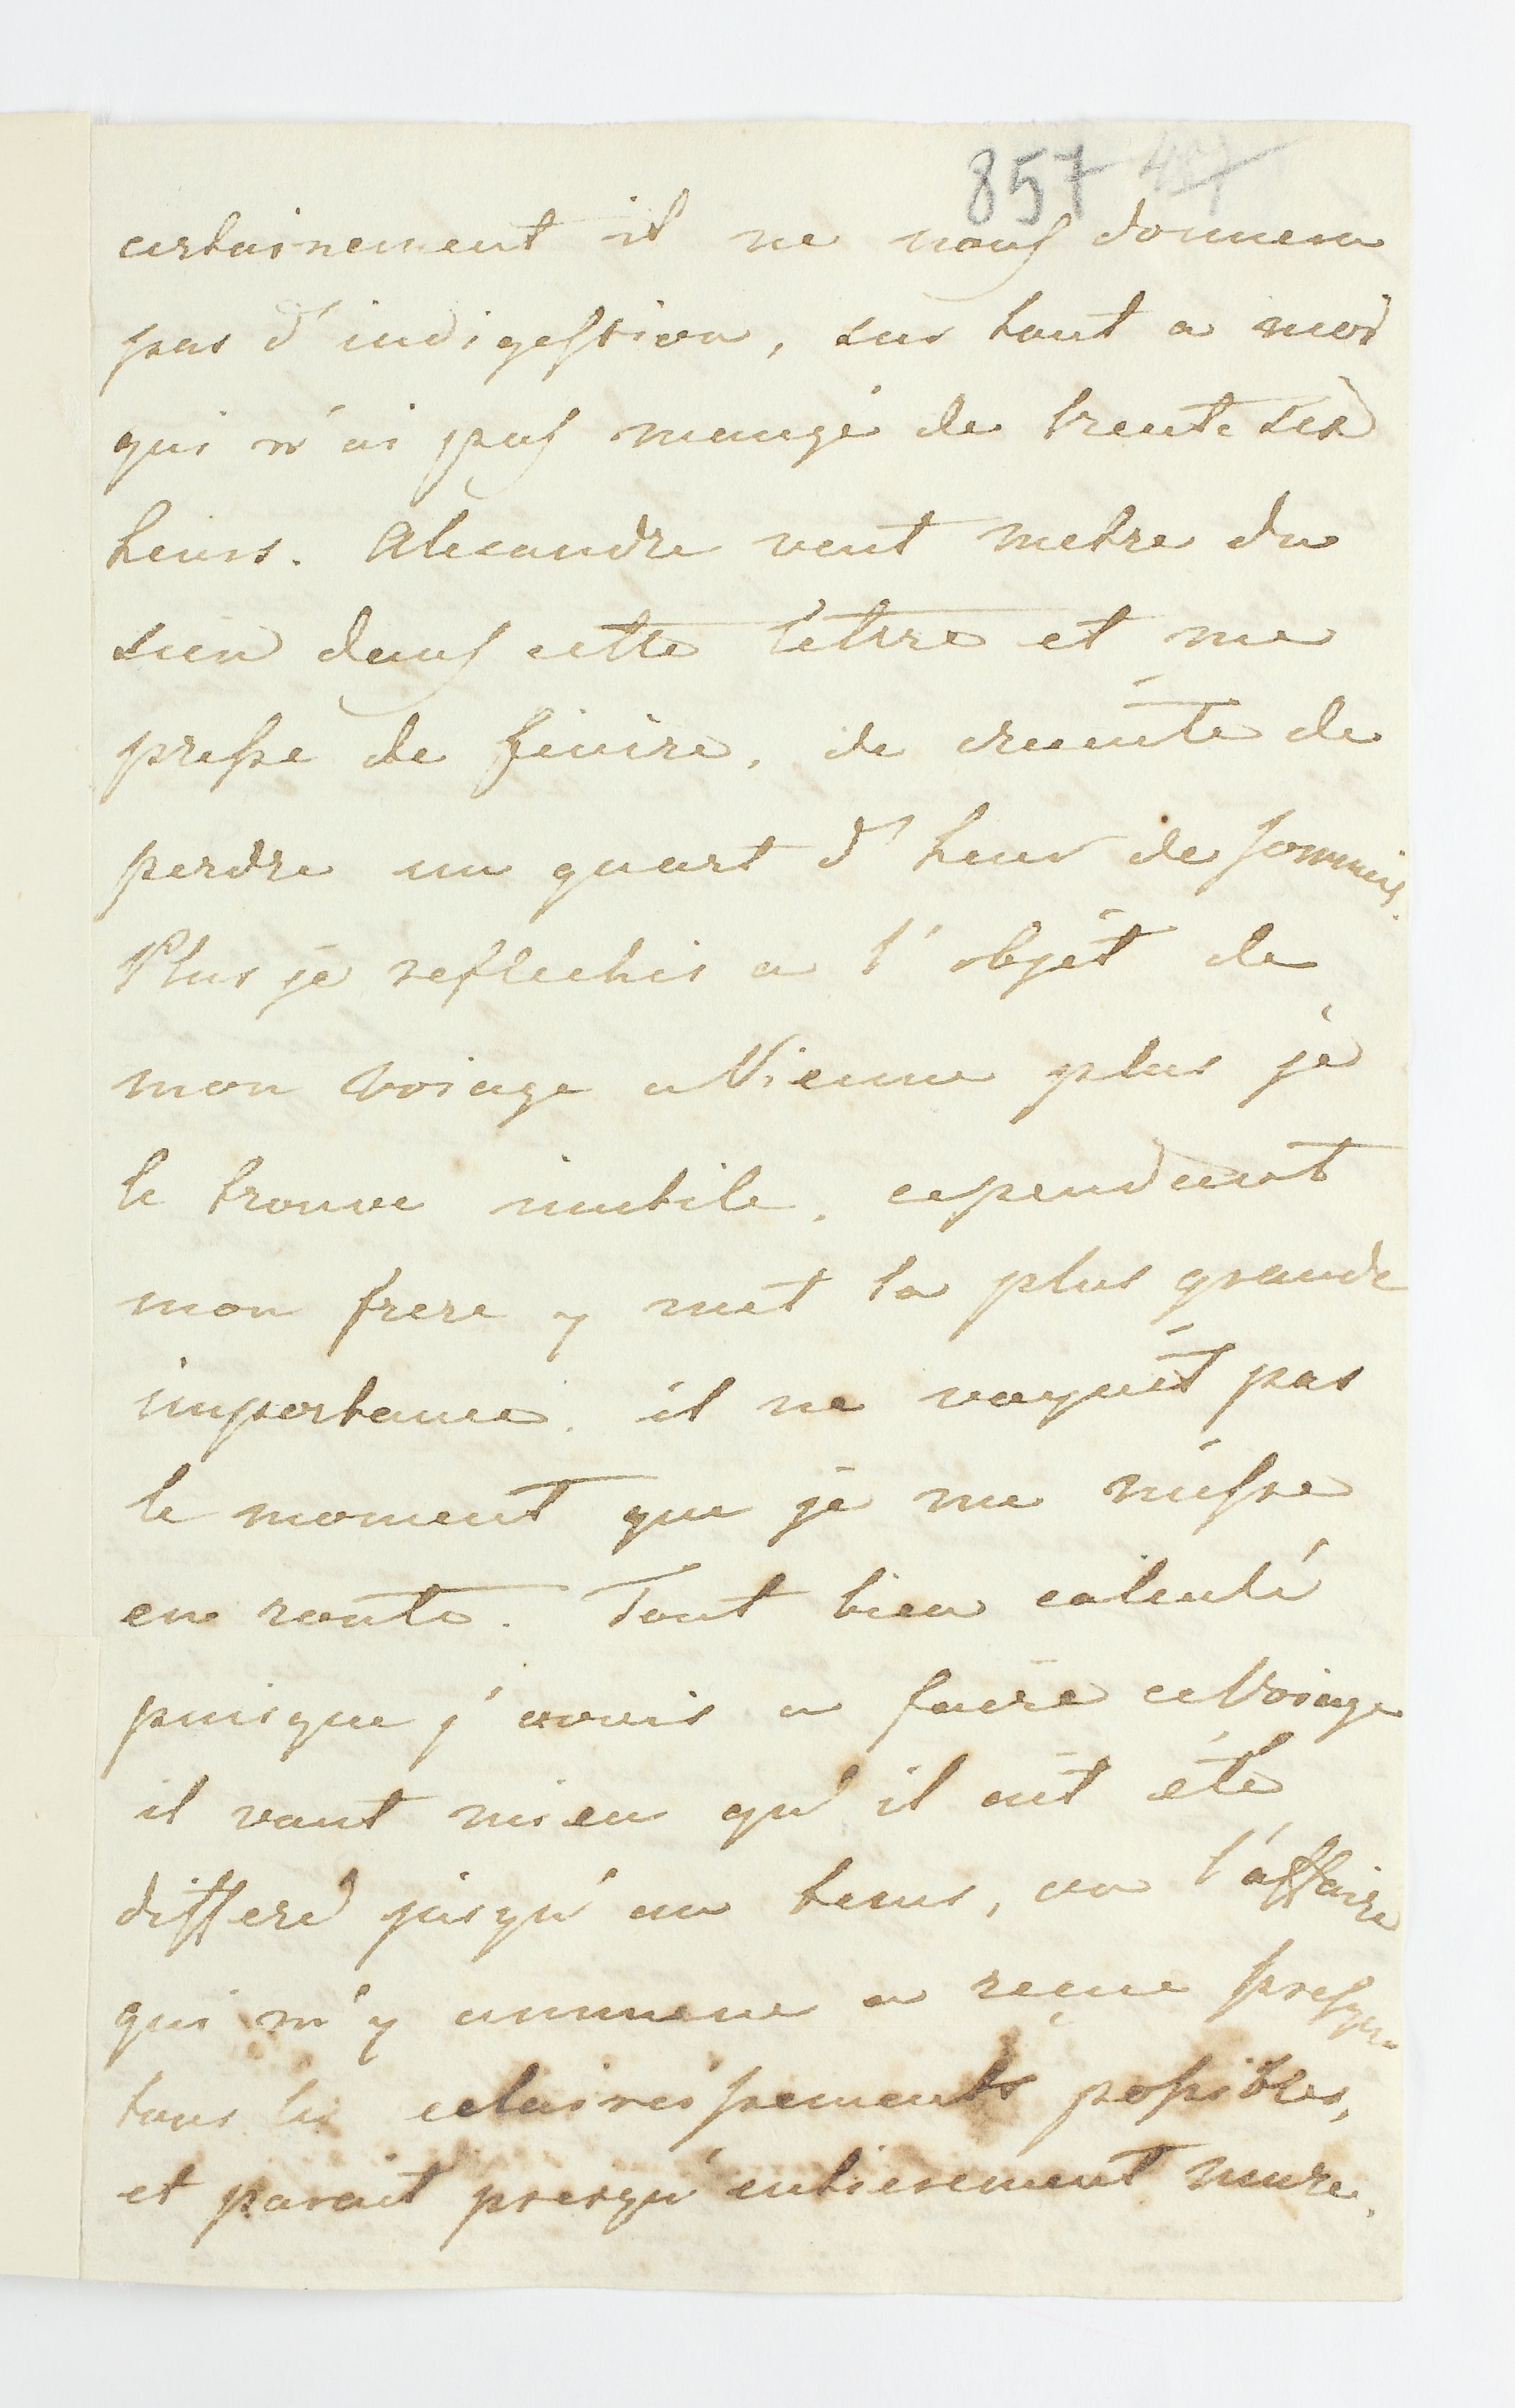 857 417
certainement il ne nous donnera
pas d'indigestion, sur tout a moi
qui n'ai pas mangé de trente six
heurs. Alexandre veut metre du
sien dans cette lettre et me
presse de finire, de crainte de
perdre un quart d'heur de sommeil.
Plus je reflechis a l'objèt de
mon voiage a Vienne plus je
le trouve inutile. cependant
mon frere y mèt la plus grande
importance. il ne voyait pas
le moment que je me misse
en route. Tout bien calculé
puisque j'avais a faire ce Voiage
il vaut mieu qu'il ait été
differé jusqu'au tems, ou l'affaire
qui m'y ammene a reçue presque
tous les eclaircissements possibles,
et parait presqu'entierement mure.